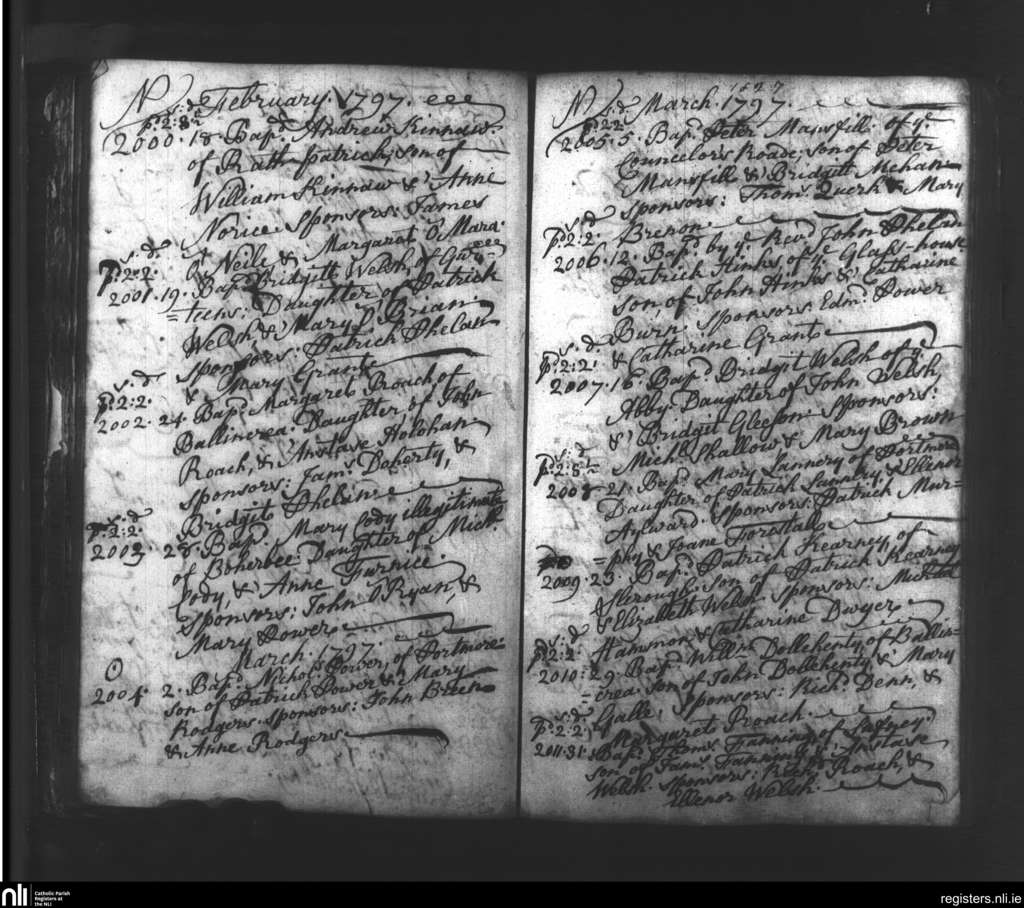 No February. 1797.
s: d
pd: 2: 8 1/2
2000. 18. Bapd Andrew Kinnaw
of Rath-patrick, son of
William Kinnaw & Anne
Norice. Sponsors: James
O'Neile & Margaret O'Mara.
s. d.
pd: 2: 2.
2001. 19. Bapd Bridgitt Welsh, of
=teens: Daughter of Patrick
Welsh, & Mary O'Brian
sponsors: Patrick Phelan
& Mary Grant
s. d.
pd: 2: 2.
2002. 24. Bapd Margaret Roach of
Ballincrea. Daughter of John
Roach, & Anstase Holohan
sponsors: Jams. Doherty, &
Bridgit Phelin
s: d
pd: 2: 2.
2003. 28. Bapd Mary Cody illegitimate
of Boherbee: Daughter of Mich:
Cody, & Anne Furnice
sponsors: John O'Ryan, &
Mary Power
March. 1797.
0
2004. 2. Bapd Nichos. Power, of Portmore
son of Patrick Power & Mary
Rodgers. sponsors: John Breen
& Anne Rodgers.
1827
No March. 1797.
s: d
pd: 2 2
2005. 5. Bapd Peter Mansfill of ye
Councelors Roade; son of Peter
Mansfill & Bridgitt Mehan
sponsors: Thoms. Querk & Mary
Brenon
s: d.
pd: 2: 2.
2006. 12. Bapd by ye Revd John Phelan
Patrick Hinks of ye Glass-house
son, of John Hinks & Catharine
Burn. sponsors Edmd. Power
& Catharine Grant
s. d.
pd: 2: 2.
2007. 16. Bapd Bridgit Welsh of ye
Abby. Daughter of John Welsh
& Bridgit Gleeson sponsors:
Michl. Shallow & Mary Brown
s: d
pd: 2: 8 1/2
2008 21. Bapd Mary Lannery of Portmore
Daughter of Patrick Lannery & Ellenor
Aylward. sponsors: Patrick Mur=
=phy & Joane Forestal
2009. 23. Bapd Patrick Kearney, of
Slerough: son of Patrick Kearney
& Elizabeth Welsh. sponsors: Michael
Hammon & Catharine Dwyer
s: d
pd: 2: 2.
2010: 29. Bapd Willm Dollehenty, of Ballin=
=crea. son of John Dollehenty, & Mary
Galle, sponsors: Richd. Denn, &
Margaret Roach.
s: d
pd: 2: 2
2011. 31. Bapd Thoms. Fanning of
son of Jams. Fanning, & Anstase
Welsh. sponsors: Richd. Roach, &
Ellenor Welsh.
nli
Catholic Parish
Registers at
the NLI
registers.nli.ie